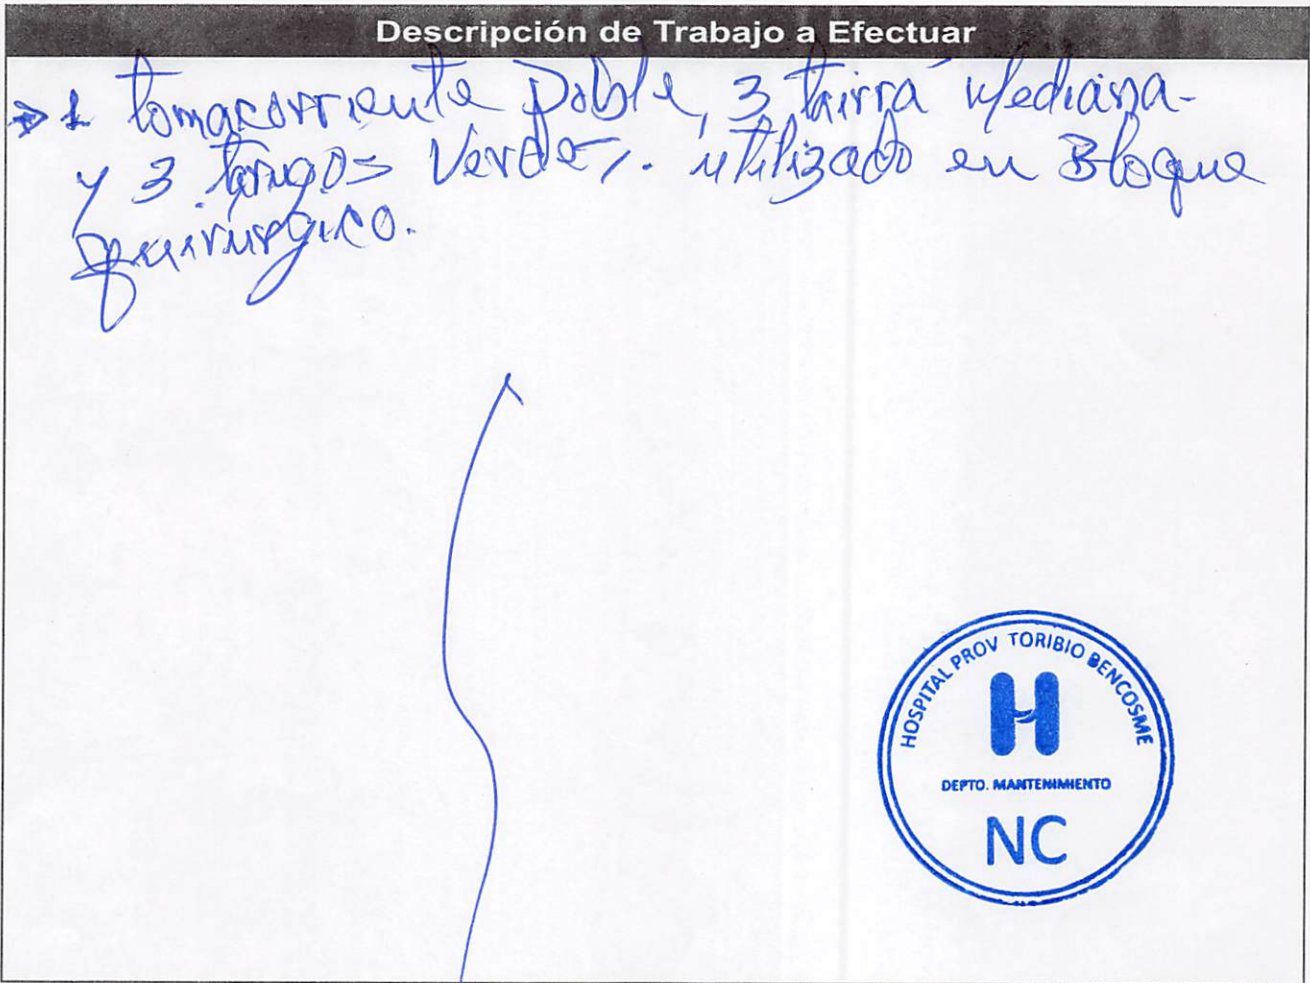 Descripción de Trabajo a Efectuar
1 tomacorriente Doble, 3 tairra Mediana-
y 3 tarugos Verde, . utilizado en Bloque
quirurgico.
HOSPITAL PROV TORIBIO BENCOSME
H
DEPTO. MANTENIMIENTO
NC